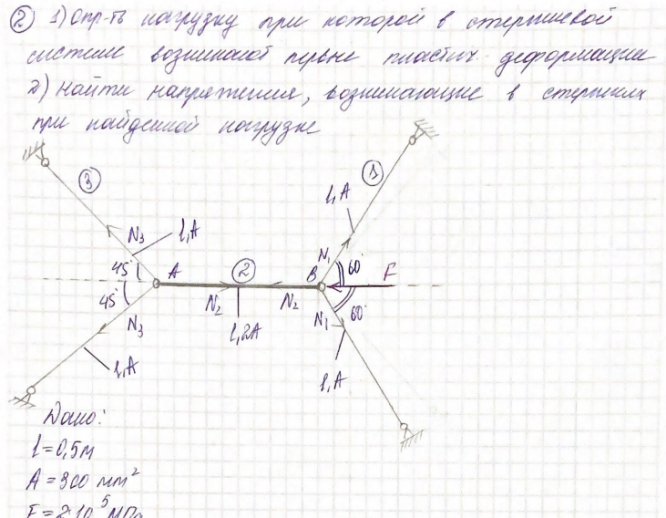 ② 1) Опр-ть нагрузку при которой в стержневой
системе возникают первые пластич. деформации
2) Найти напряжения, возникающие в стержнях
при найденной нагрузке
③
①
l,A
N3
l,A
45°
A
②
B
N1
60°
F
45°
N3
N2
N2
N1
60°
l,2A
l,A
l,A
Дано:
l=0,5м
A=300 мм²
E=2·10⁵МПа